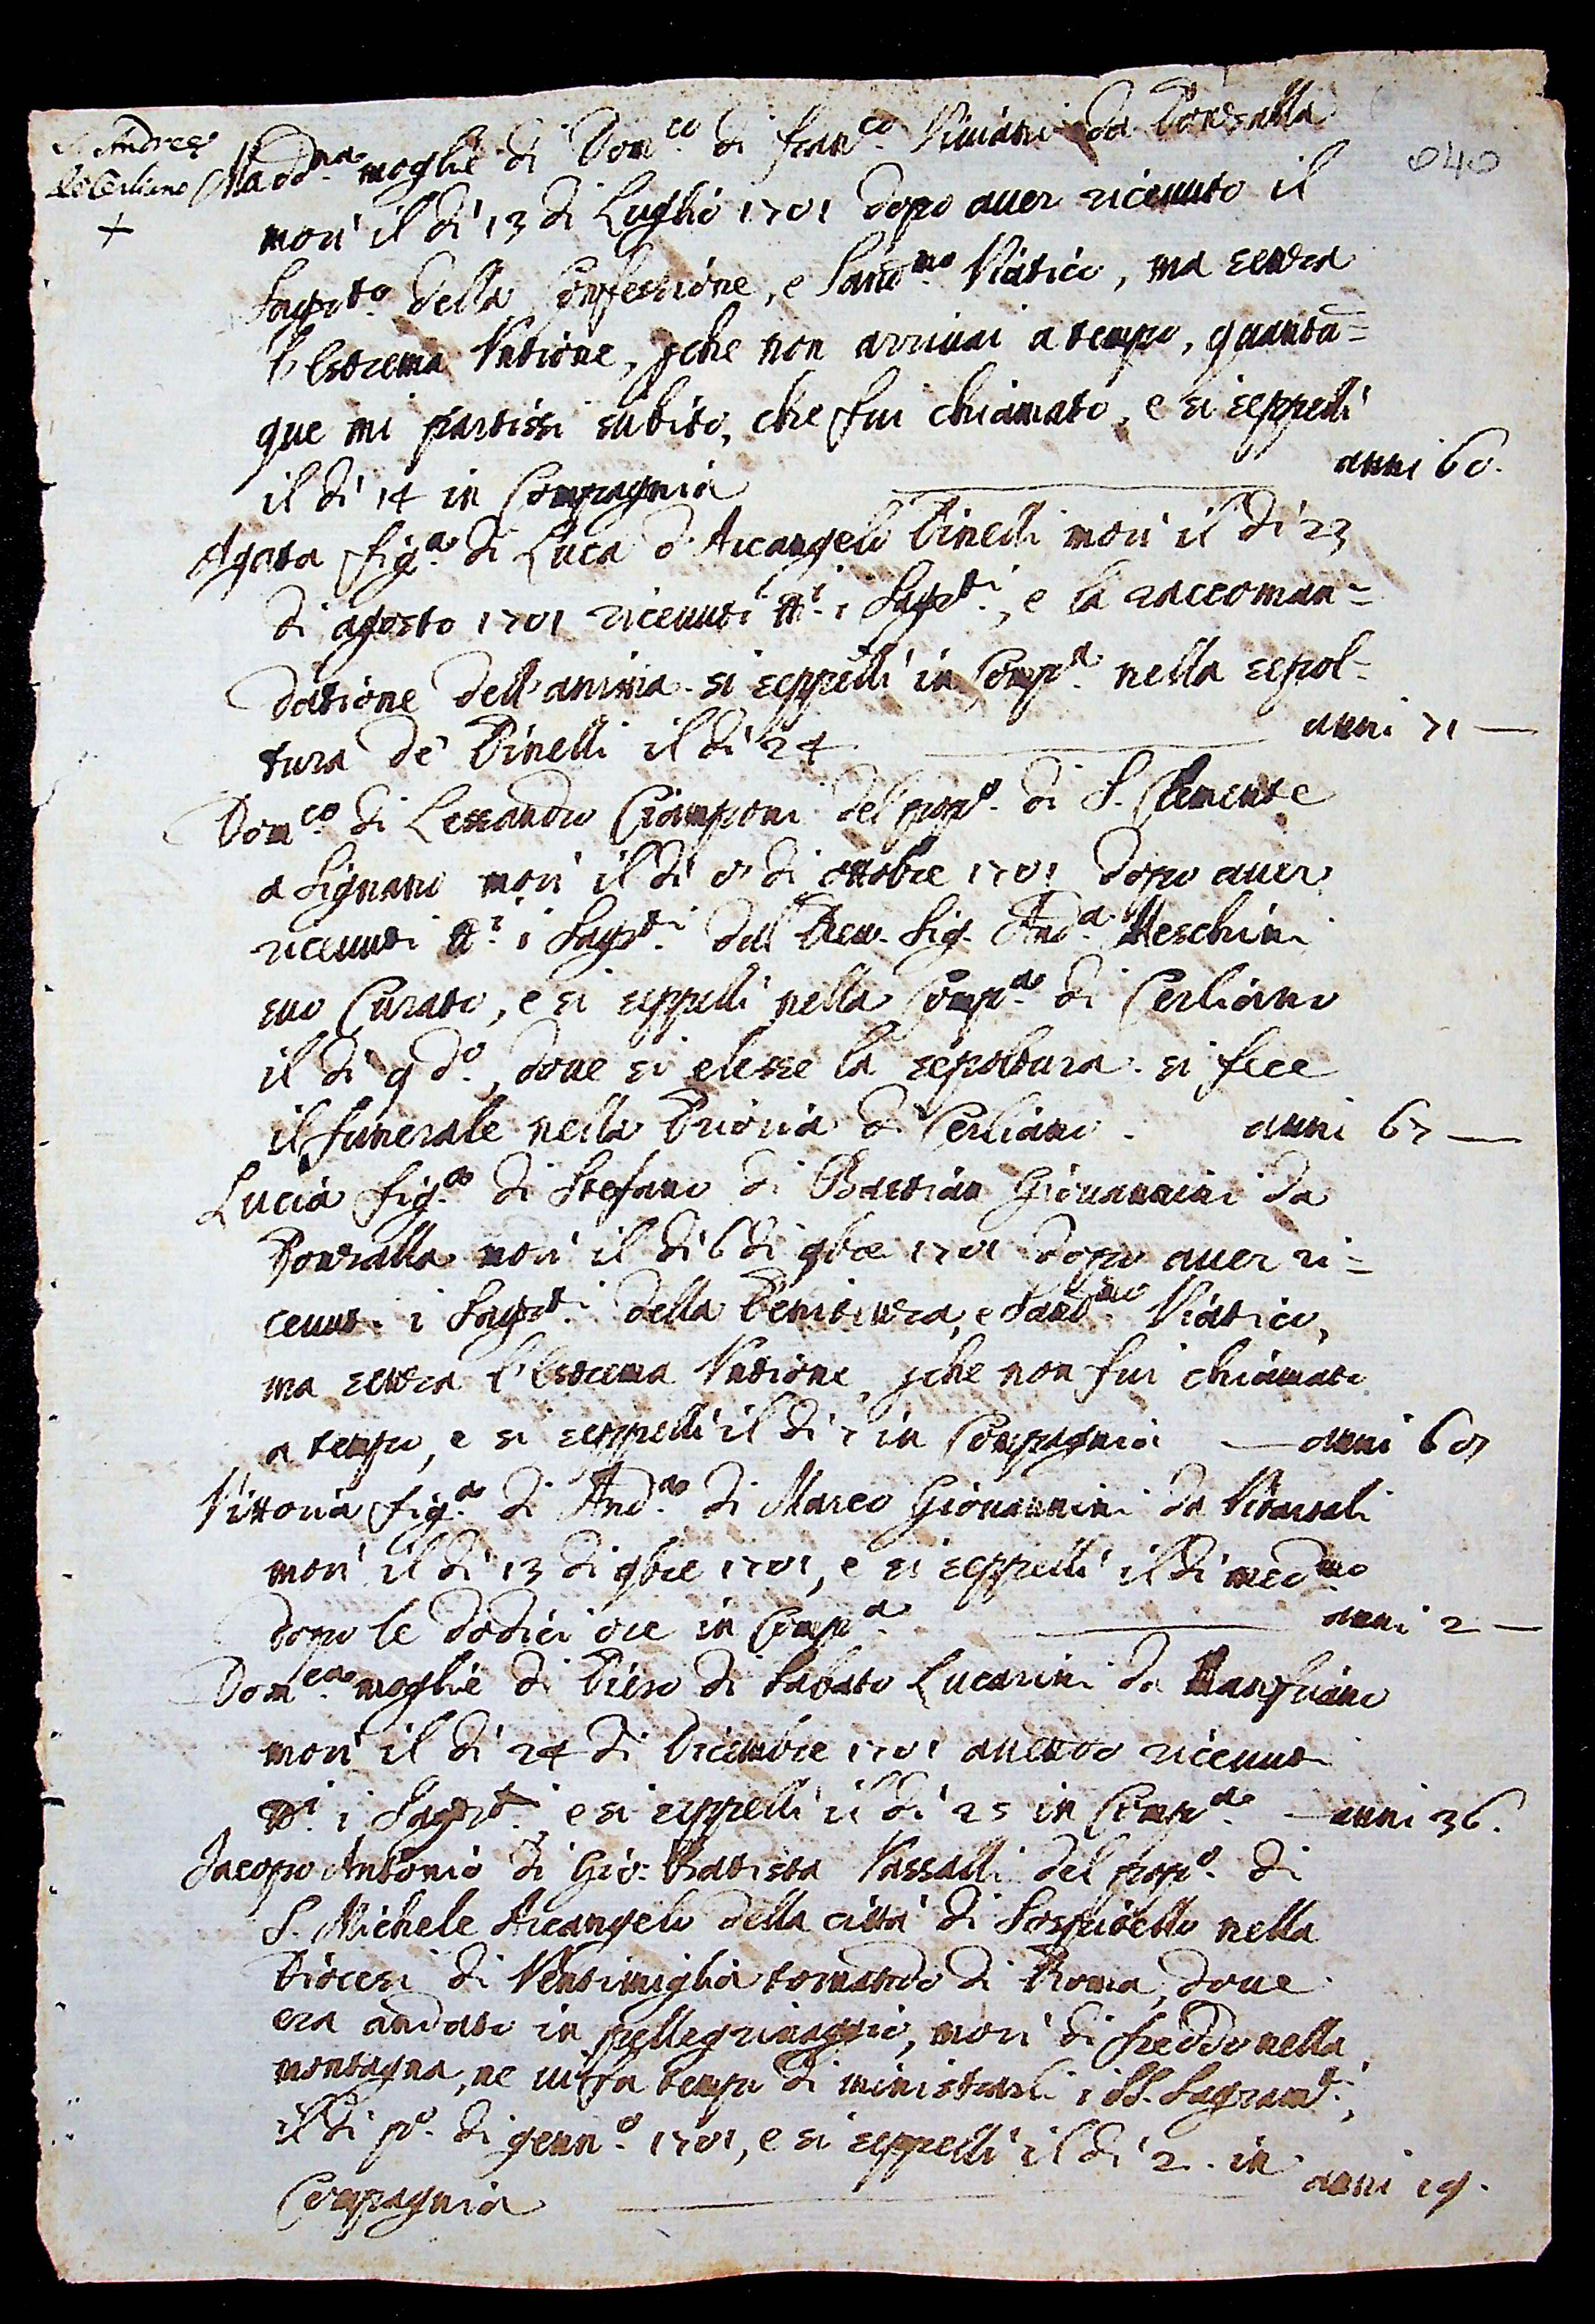 S. Andrea
a Cerliano
+
040
Madd.na moglie di Dom.co di Fran.co Viviani da Ponzalla
morì il dì 13 di Luglio 1701 dopo aver ricevuto il
Sagr.to della Confessione, e Sant.mo Viatico, ma senza
l'Estrema Untione, pche non arrivai a tempo, quantu=
que mi partissi subito, che fui chiamato, e si seppellì
il dì 14 in Compagnia anni 60.
Agata fig.a di Luca d'Arcangelo Pinelli morì il dì 23
di agosto 1701 ricevuti tt.i i Sagr.ti, e la raccoman=
datione dell'anima. si seppellì in Comp.a nella sepol=
tura de' Pinelli il dì 24 anni 71 —
Dom.co di Lessandro Ciamponi del pop.o di S. Clemente
a Signano morì il dì 8 di ottobre 1701 dopo aver
ricevuti tt.i i Sagr.ti dal Rev. Sig. And.a Meschini
suo Curato, e si seppellì nella Comp.a di Cerliano
il dì 9 d.o, dove si elesse la sepoltura. si fece
il funerale nella Prioria di Cerliano. anni 67 —
Lucia fig.a di Stefano di Bastian Giovannini da
Ponzalla morì il dì 6 di 9bre 1701 dopo aver ri=
cevuti i Sagr.ti della Penitenza, e Sant.mo Viatico,
ma senza l'Estrema Untione, pche non fui chiamato
a tempo, e si seppellì il dì 7 in Compagnia — anni 68
Vittoria fig.a di And.a di Marco Giovannini da
morì il dì 13 di 9bre 1701, e si seppellì il dì med.mo
dopo le dodici ore in Comp.a anni 2 —
Dom.ca moglie di Piero di Sabato Lucarini da
morì il dì 24 di Dicembre 1701 avendo ricevuti
tt.i i Sagr.ti, e si seppellì il dì 25 in Comp.a — anni 36.
Jacopo Antonio di Gio: Batista Vassalli del pop.o di
S. Michele Arcangelo della città di Sospitello nella
Diocesi di Ventimiglia tornando di Roma, dove
era andato in pellegrinaggio, morì di freddo nella
montagna, ne vi fu tempo di ministrarli i SS. Sagram.ti,
il dì p.o di genn.o 1701, e si seppellì il dì 2. in
Compagnia anni 19.